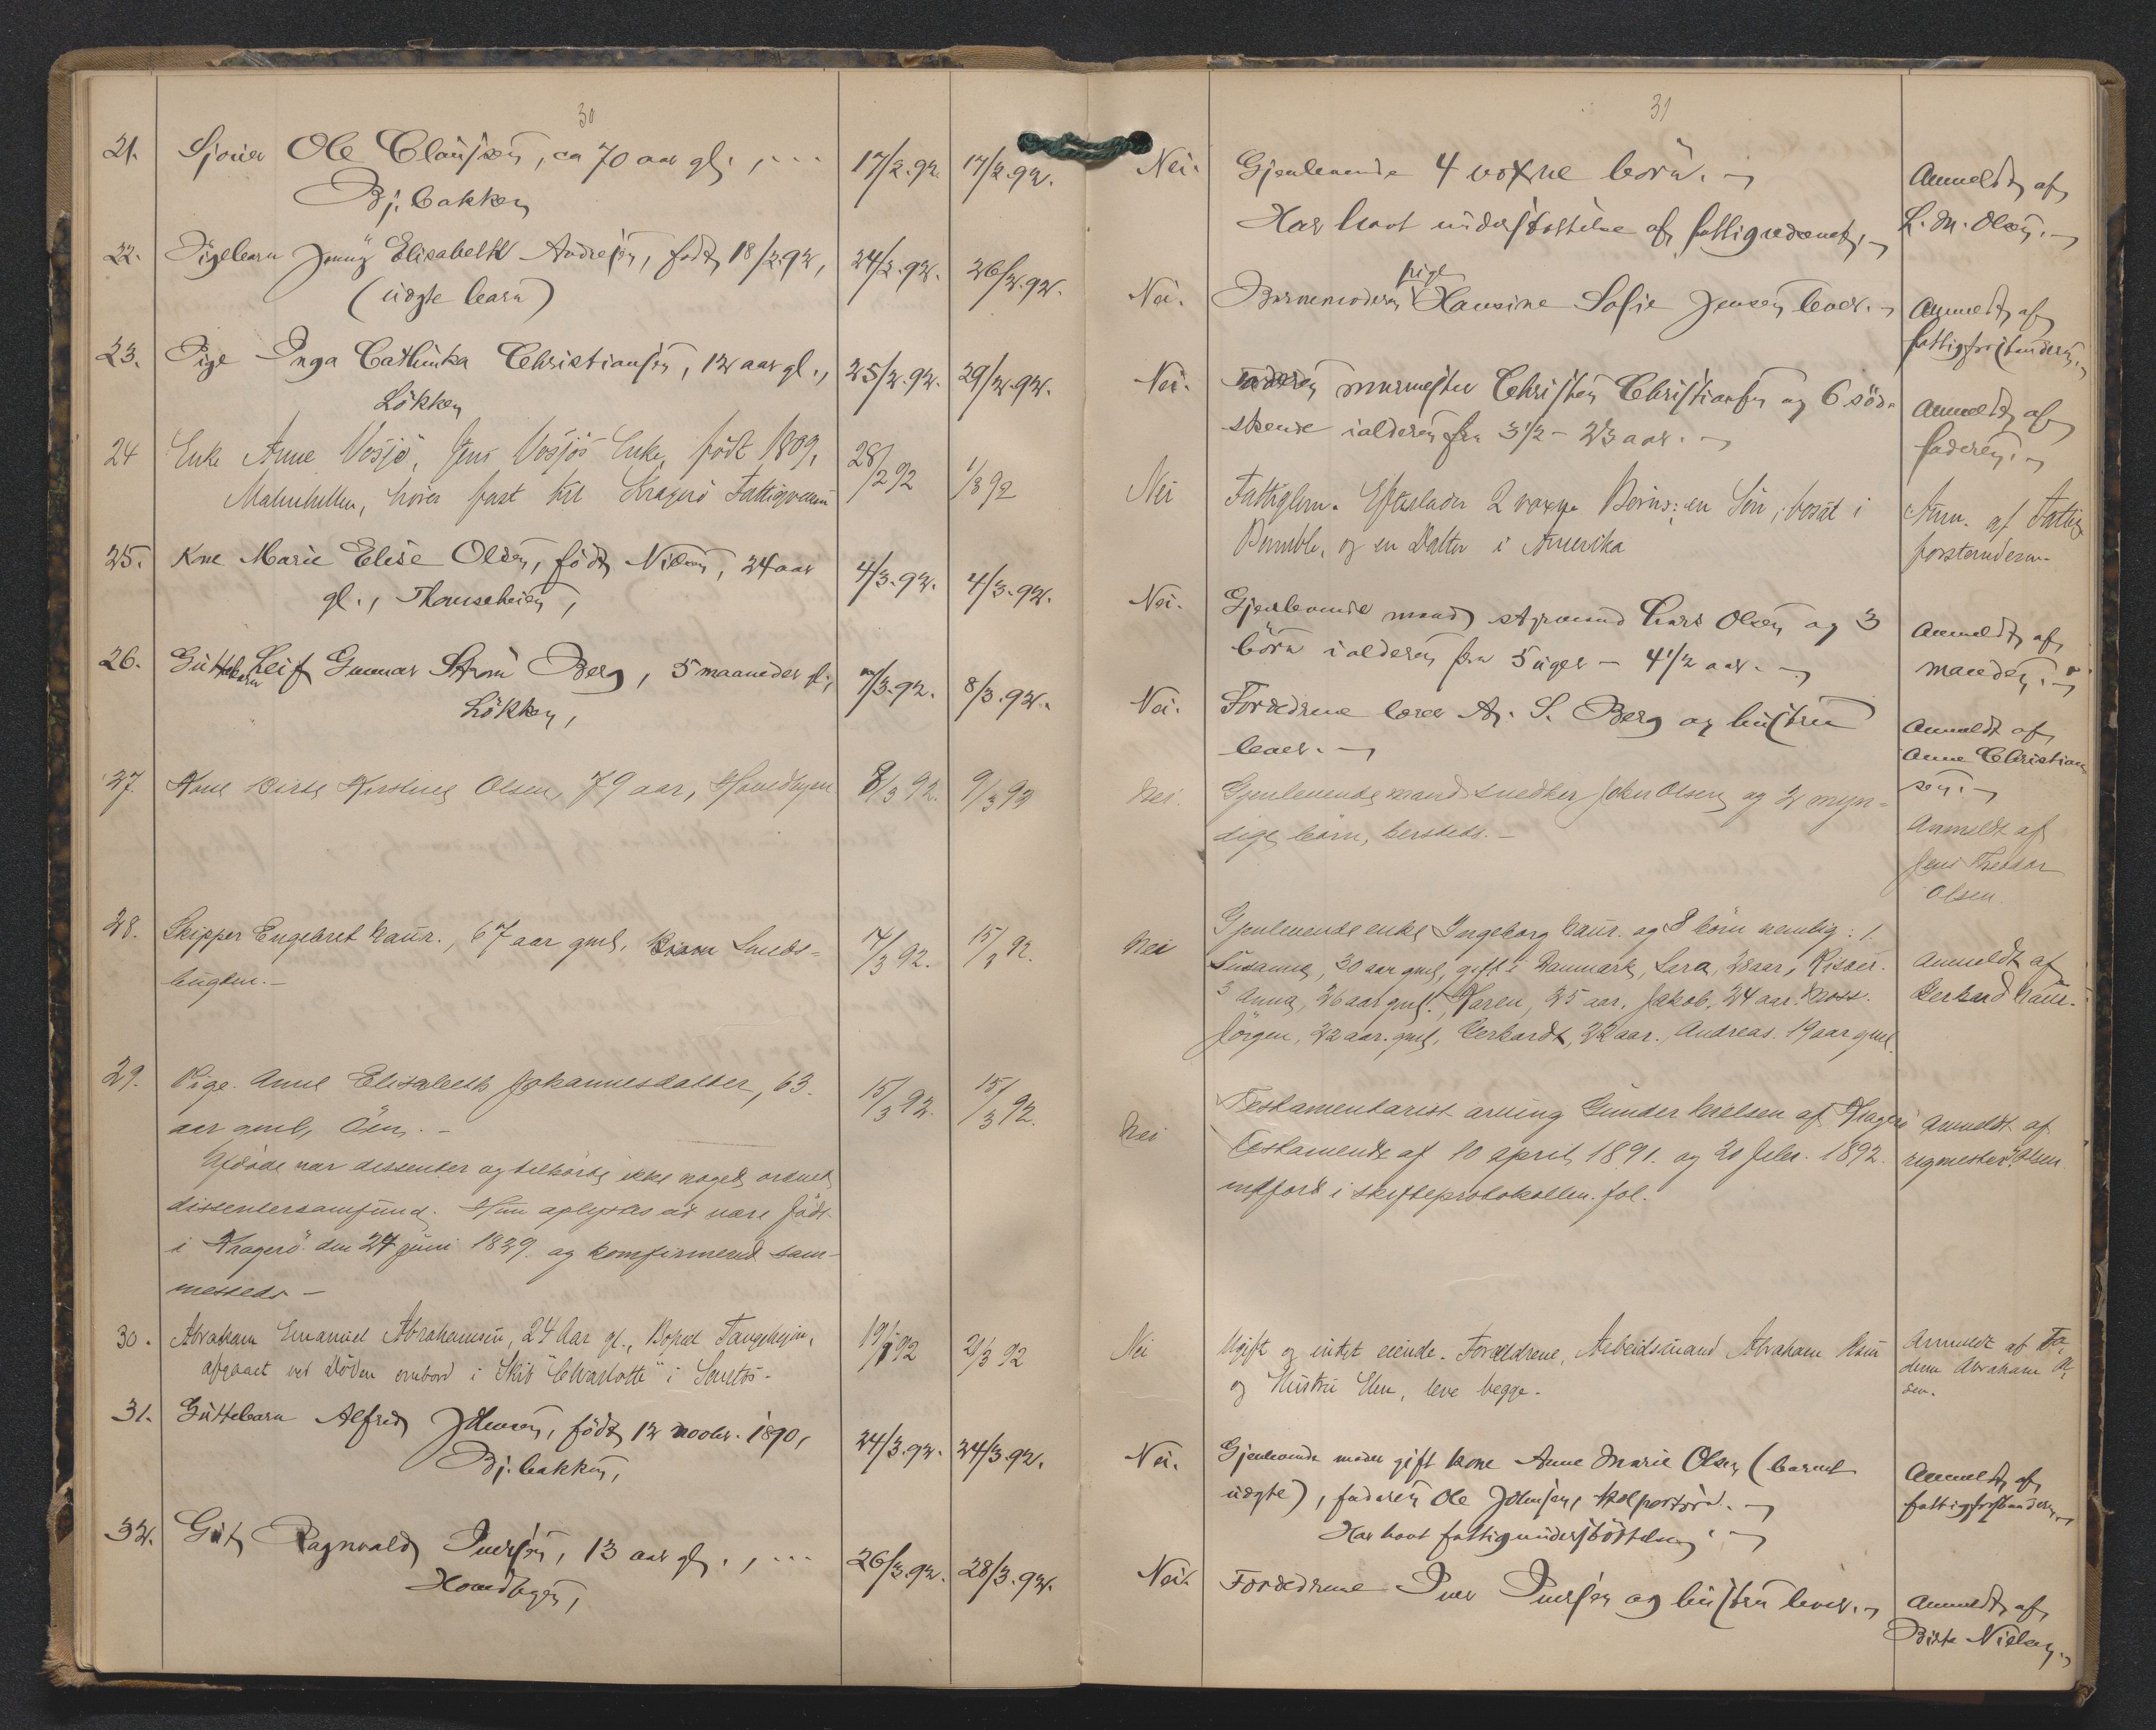 30
21. Sjouer Ole Clausen, ca 70 aar gl.,
Bj.bakken
17/2.92. 17/2.92.
22. Pigebarn Jenny Elisabeth Andresen, født 18/2.92,
(uægte barn)
24/2.92. 26/2.92.
23. Pige Inga Cathinka Christiansen, 12 aar gl.,
Lökken
25/2.92. 29/2.92.
24 Enke Anne Vosjö, Jens Vosjös Enke, født 1809,
hörer fast til Kragerö Fattigvæsen
28/2 92 1/3 92
25. Kne Marie Elise Olsen, född Nilsen, 24 aar
gl.,
4/3.92. 4/3.92.
26. Guttebarn Leif Gunnar Strøm Berg, 5 maaneder gl.,
Lökken,
7/3.92. 8/3.92.
27. Kone Birte Kirstine Olsen, 79 aar, Hovedbyen
8/3 92. 9/3 92
28. Skipper Engebret Laur., 67 aar gml, Smeds-
bugten.-
14/3 92. 15/3 92.
29. Pige Anne Elisabeth Johannesdatter, 63
aar gml, Öen. -
Afdöde var dissenter og tilhörte ikke noget ordnet
dissentersamfund. Hun oplystes at være född
i Kragerö den 24 juni 1829. og komfirmered sam-
mesteds -
15/3 92. 15/3 92.
30. Abraham Emanuel Abrahamsen, 24 Aar gl., Boped Tangehejen,
afgaaet ved Döden ombord i Skib "Charlotte" i Santos.
19/1 92 21/3 92
31. Guttebarn Alfred Johnsen, född 12 novbr. 1890,
Bj.bakken,
24/3.92. 24/3.92.
32. Gut Ragnvald Iversen, 13 aar gl.,
Hovedbyen,
26/3.92. 28/3.92.
31
Nei. Gjenlevende 4 voxne börn.
Har havt understöttelse af fattigvæsenet,
Anmeldt af
L. M. Olsen.
Nei. Barnemoderen pige Hansine Sofie Jensen lever.
Anmeldt af
fattigforstanderen.
Nei. Faderen murmester Christen Christiansen og 6 söd-
skende i alderen fra 3 1/2 - 23 aar.
Anmeldt af
faderen.
Nei Fattiglem. Efterlader 2 voxne Börn: en Sön, bosat i
Bamble, og en Datter i Amerika
Anm. af Fattig
forstanderen.
Nei. Gjenlevende mand styrmand Lars Olsen og 3
börn i alderen fra 5 uger - 4 1/2 aar.
Anmeldt af
manden.
Nei. Forældrene lærer A. S. Berg og hustru
lever.
Anmeldt af
Anne Christian
sen.
Nei. Gjenlevende mand snedker John Olsen og 2 myn-
dige börn, hersteds. -
Anmeldt af
Jens Theodor
Olsen.
Nei Gjenlevende enke Ingeborg Laur. og 8 börn nemlig: 1.
Susanne, 30 aar gml, gift i Danmark, Sara, 28 aar, Risöer.
3 Anna, 26 aar gml. Karen, 25 aar, Jakob, 24 aar. Moss.
Jörgen, 22 aar. gml, Gerhardt, 22 aar., Andreas. 19 aar gml.
Anmeldt af
Gerhard Laur.
Nei Testamentarisk arving Gunder Nielsen af Kragerö
Testamente af 10 april 1891. og 20 febr. 1892.
indförd i skifteprotokollen. fol.
Anmeldt af
rigmester Olsen.
Nei Ugift og intet eiende. Forældrene, Arbeidsmand Abraham
og Hustru Elen, leve begge.
Anmeldt af Fa-
deren Abraham
sen.
Nei. Gjenlevende moder gift kone Anne Marie Olsen (barnet
uægte), faderen Ole Johnsen,
Har havt fattigunderstöttelse,
Anmeldt af
fattigforstanderen.
Nei. Forældrene Iver Iversen og hustru lever.
Anmeldt af
Birte Nielsen.